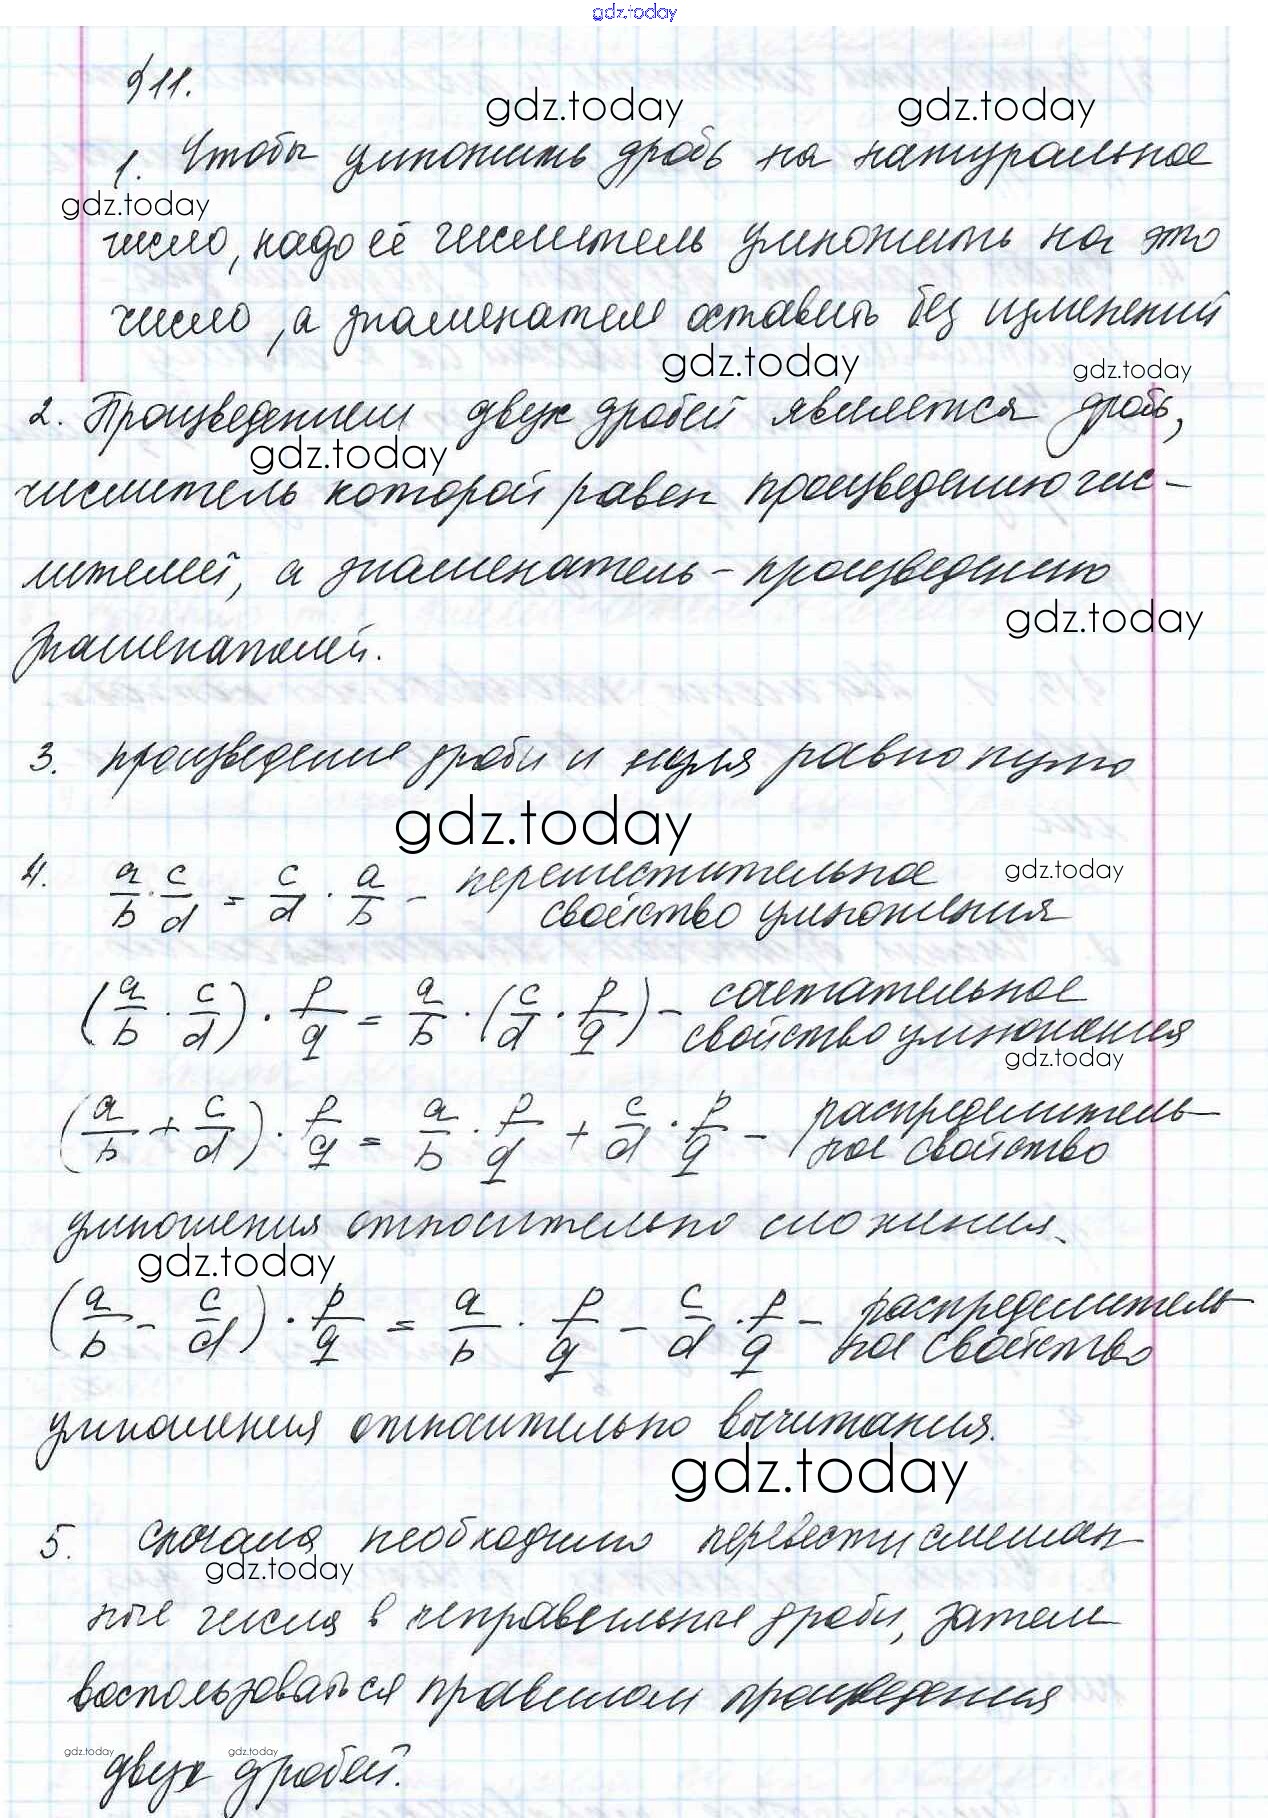 gdz.today
§11.
gdz.today gdz.today
1. Чтобы умножить дробь на натуральное
gdz.today
число, надо её числитель умножить на это
число, а знаменателем оставить без изменений
gdz.today gdz.today
2. Произведением двух дробей является дробь,
gdz.today
числитель которой равен произведению чис-
лителей, а знаменатель – произведению
gdz.today
знаменателей.
3. произведение дроби и нуля равно нулю
gdz.today
4. a/b · c/d = c/d · a/b – переместительное
gdz.today
свойство умножения
(a/b · c/d) · p/q = a/b · (c/d · p/q) – сочетательное
свойство умножения
gdz.today
(a/b + c/d) · p/q = a/b · p/q + c/d · p/q – распределитель-
ное свойство
умножения относительно сложения.
gdz.today
(a/b - c/d) · p/q = a/b · p/q - c/d · p/q – распределитель-
ное свойство
умножения относительно вычитания.
gdz.today
5. Сначала необходимо перевести смешан-
gdz.today
ные числа в неправильные дроби, затем
воспользоваться правилом произведения
gdz.today gdz.today
двух дробей.